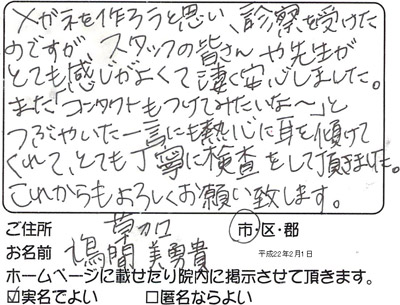 メガネを作ろうと思い、診察を受けた
のですが スタッフの皆さんや先生が
とても感じがよくて凄く安心しました。
また「コンタクトもつけてみたいな〜」と
つぶやいた一言にも熱心に耳を傾けて
くれて、とても丁寧に検査をして頂きました。
これからもよろしくお願い致します。
ご住所 草加 市・区・郡
お名前 鳩間 美勇貴 平成22年2月1日
ホームページに載せたり院内に掲示させて頂きます。
☑実名でよい □匿名ならよい